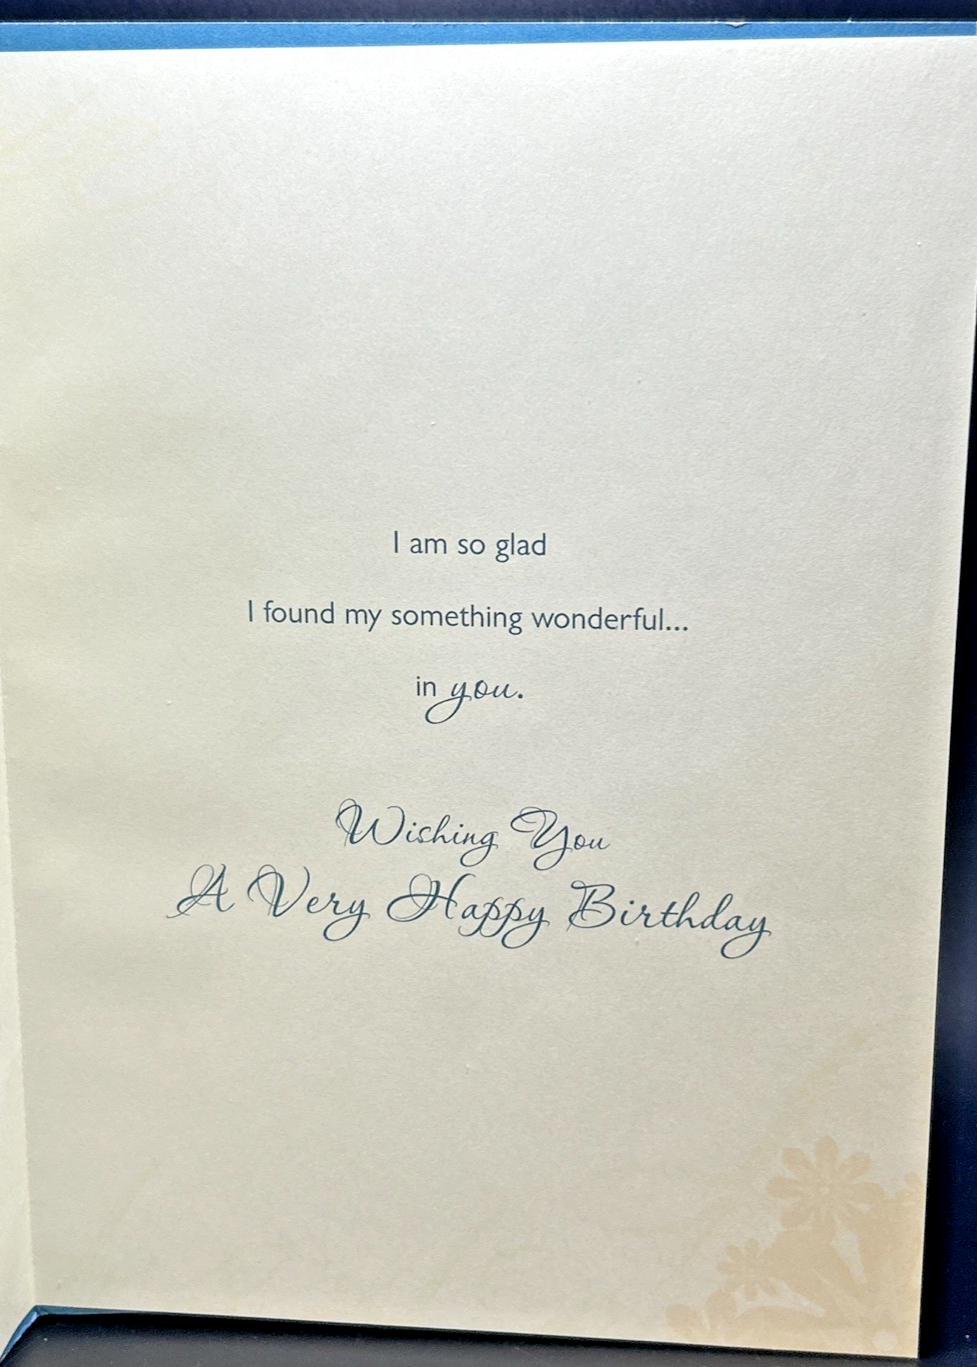 I am so glad
I found my something wonderful...
in you.
Wishing You
A Very Happy Birthday